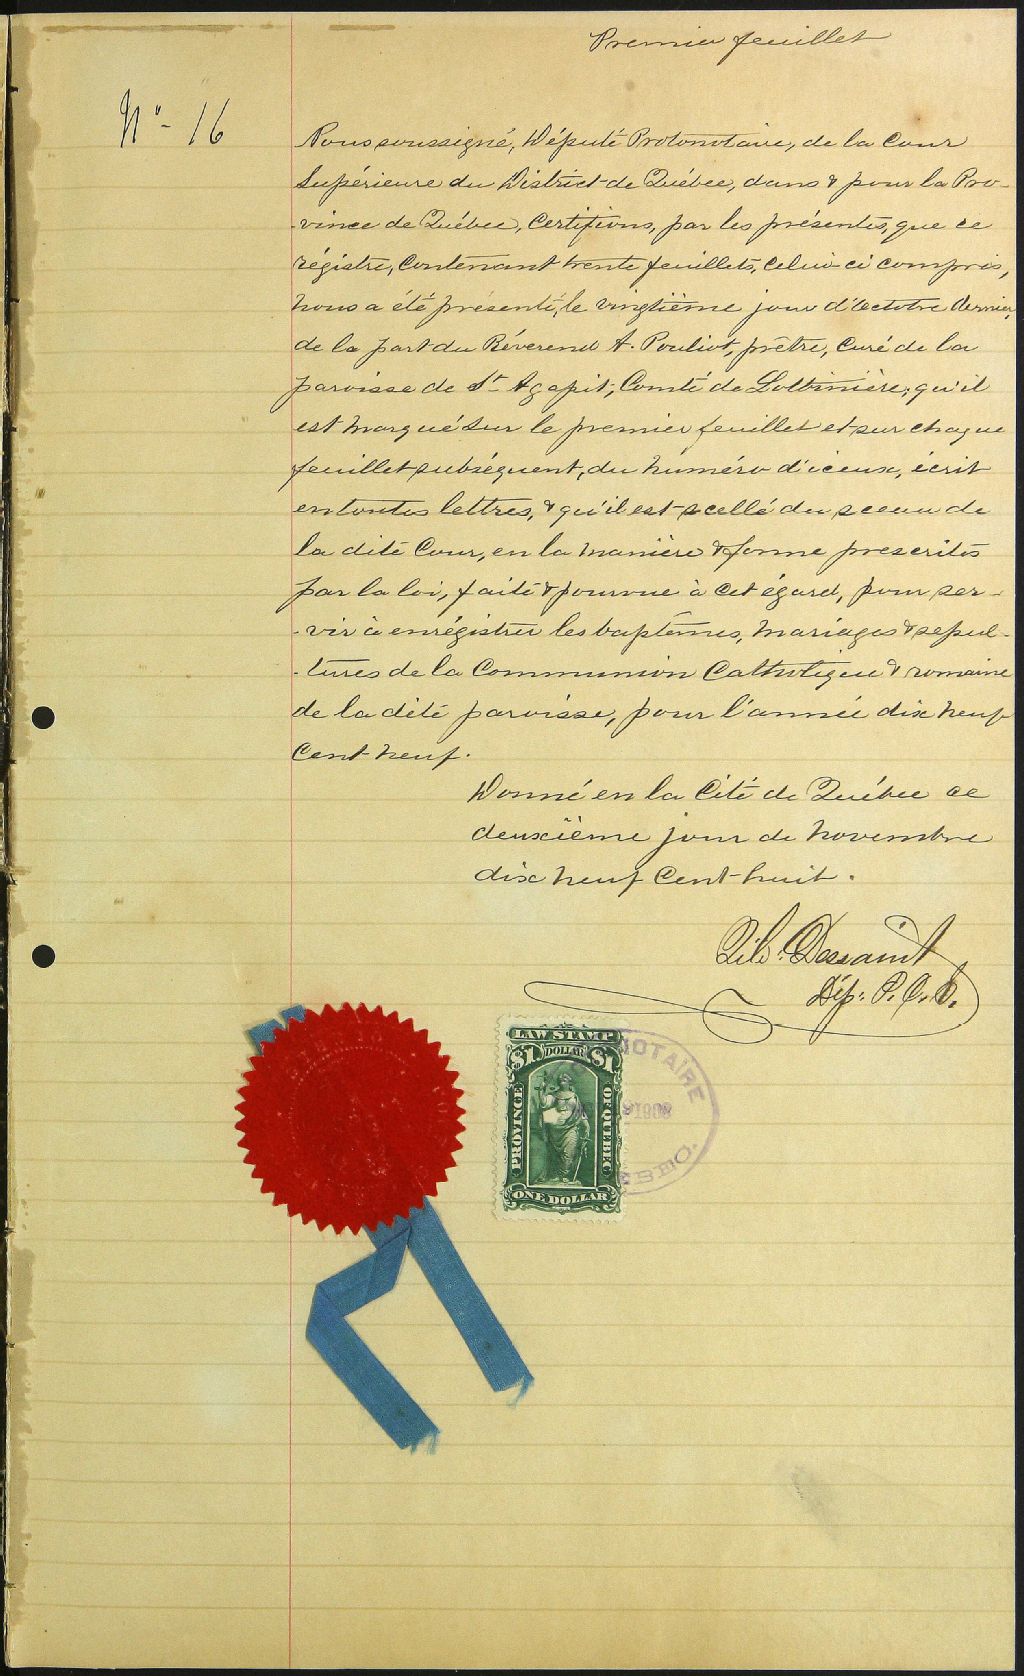 Premier feuillet
No- 16
Nous soussigné, Député Protonotaire, de la Cour
Supérieure du District de Québec, dans & pour la Pro-
-vince de Québec, Certifions, par les présentes, que ce
régistre, contenant trente feuillets, celui-ci compris,
nous a été présenté, le vingtième jour d'octobre dernier,
de la part du Révérend A. Pouliot, prêtre, Curé de la
paroisse de St Agapit, Comté de Lotbinière; qu'il
est marqué sur le premier feuillet et sur chaque
feuillet subséquent, du numéro d'iceux, écrit
en toutes lettres, & qu'il est scellé du sceau de
la dite Cour, en la manière & forme prescrites
par la loi, faite & pourvue à cet égard, pour ser-
-vir à enrégistrer les baptêmes, mariages & sepul-
-tures de la Communion Catholique & romaine
de la dite paroisse, pour l'année dix neuf
Cent neuf.
Donné en la Cité de Québec ce
deuxième jour de novembre
dix neuf Cent huit.
Dessaint
Dép: P. C. S.
LAW STAMP
$1 DOLLAR $1
PROVINCE
OF QUEBEC
ONE DOLLAR
NOTAIRE
1908